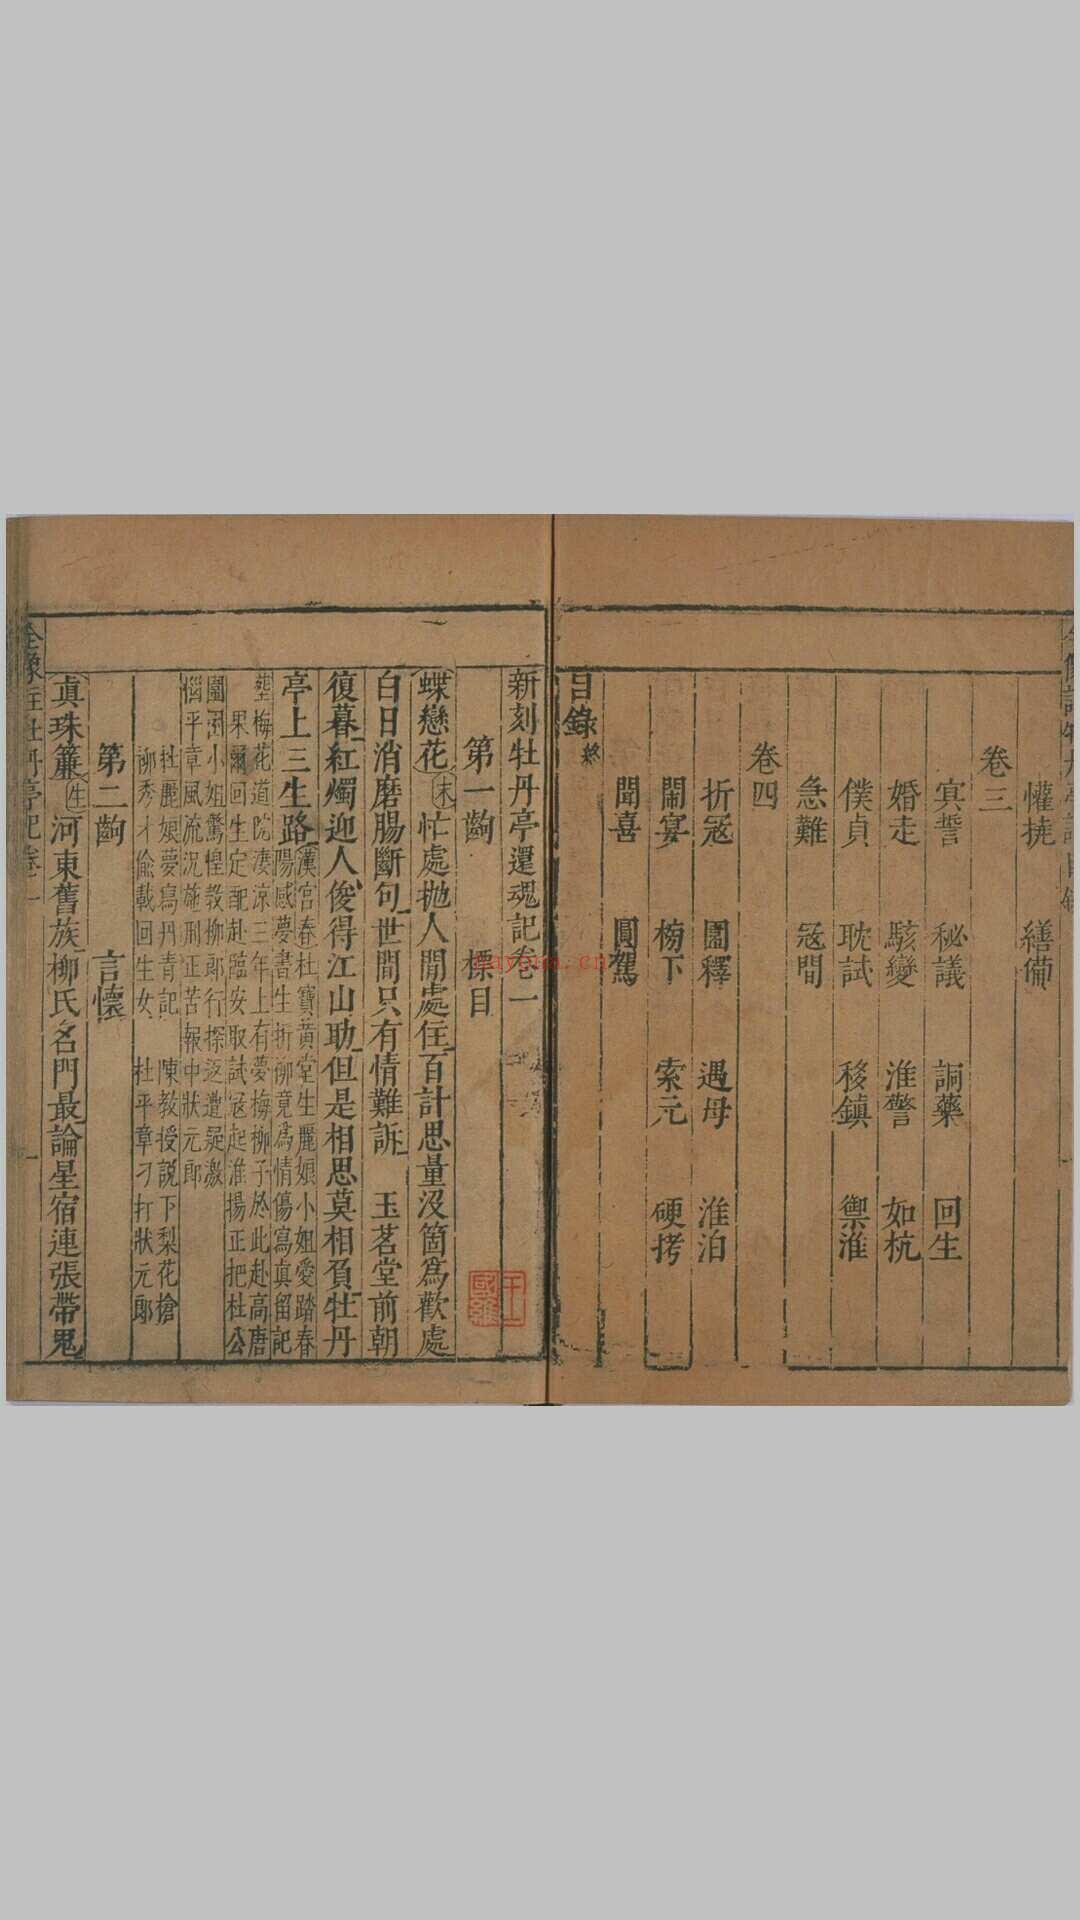 懽撓　繕備
卷三
寘誓　秘議　詗藥　回生
婚走　駭變　淮警　如杭
僕貞　耽試　移鎮　禦淮
急難　寇間
卷四
折寇　圍釋　遇母　淮泊
鬧宴　榜下　索元　硬拷
聞喜　圓駕
目錄終
新刻牡丹亭還魂記卷一
第一齣　標目
蝶戀花末忙處拋人閒處住百計思量沒箇為歡處
白日消磨腸斷句世間只有情難訴　玉茗堂前朝
復暮紅燭迎人俊得江山助但是相思莫相負牡丹
亭上三生路漢宮春杜寶黃堂生麗娘小姐愛踏春
陽感夢書生折柳竟為情傷寫真留記
塟梅花道院淒涼三年上有夢梅柳子於此赴高唐
果爾回生定配赴臨安取試寇起淮揚正把杜公
圍困小姐驚惶敎柳郎行探返遭疑激
惱平章風流況施刑正苦報中狀元郎
杜麗娘夢寫丹青記　陳教授説下梨花搶
柳秀才偷載回生女　杜平章刁打狀元郎
第二齣　言懷
真珠簾生河東舊族柳氏名門最論星宿連張帶鬼
全像註牡丹亭記卷一
一
王國維
nayona.cn